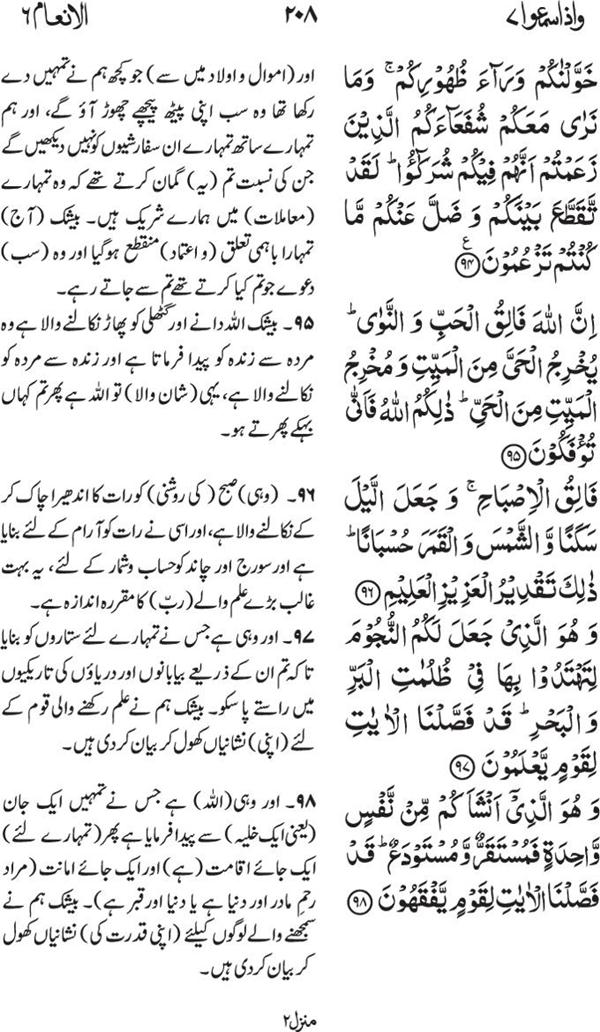 واذا سمعوا ۷
۲۰۸
الانعام ۶
خَوَّلْنٰكُمْ وَرَآءَ ظُهُوْرِكُمْ ۚ وَمَا
نَرٰى مَعَكُمْ شُفَعَآءَكُمُ الَّذِيْنَ
زَعَمْتُمْ اَنَّهُمْ فِيْكُمْ شُرَكٰٓؤُا ؕ لَقَدْ
تَّقَطَّعَ بَيْنَكُمْ وَ ضَلَّ عَنْكُمْ مَّا
كُنْتُمْ تَزْعُمُوْنَ ﴿۹۴﴾ ع
اِنَّ اللّٰهَ فَالِقُ الْحَبِّ وَ النَّوٰى ؕ
يُخْرِجُ الْحَیَّ مِنَ الْمَيِّتِ وَ مُخْرِجُ
الْمَيِّتِ مِنَ الْحَیِّ ؕ ذٰلِكُمُ اللّٰهُ فَاَنّٰى
تُؤْفَكُوْنَ ﴿۹۵﴾
فَالِقُ الْاِصْبَاحِ ۚ وَ جَعَلَ الَّيْلَ
سَكَنًا وَّ الشَّمْسَ وَ الْقَمَرَ حُسْبَانًا ؕ
ذٰلِكَ تَقْدِيْرُ الْعَزِيْزِ الْعَلِيْمِ ﴿۹۶﴾
وَ هُوَ الَّذِیْ جَعَلَ لَكُمُ النُّجُوْمَ
لِتَهْتَدُوْا بِهَا فِیْ ظُلُمٰتِ الْبَرِّ
وَ الْبَحْرِ ؕ قَدْ فَصَّلْنَا الْاٰيٰتِ
لِقَوْمٍ يَّعْلَمُوْنَ ﴿۹۷﴾
وَ هُوَ الَّذِیْۤ اَنْشَاَكُمْ مِّنْ نَّفْسٍ
وَّاحِدَةٍ فَمُسْتَقَرٌّ وَّ مُسْتَوْدَعٌ ؕ قَدْ
فَصَّلْنَا الْاٰيٰتِ لِقَوْمٍ يَّفْقَهُوْنَ ﴿۹۸﴾
اور (اموال و اولاد میں سے) جو کچھ ہم نے تمہیں دے
رکھا تھا وہ سب اپنی پیٹھ پیچھے چھوڑ آؤ گے، اور ہم
تمہارے ساتھ تمہارے ان سفارشیوں کو نہیں دیکھیں گے
جن کی نسبت تم (یہ) گمان کرتے تھے کہ وہ تمہارے
(معاملات) میں ہمارے شریک ہیں۔ بیشک (آج)
تمہارا باہمی تعلق (و اعتماد) منقطع ہوگیا اور وہ (سب)
دعوے جو تم کیا کرتے تھے تم سے جاتے رہے۔
۹۵۔ بیشک اللہ دانے اور گٹھلی کو پھاڑ نکالنے والا ہے وہ
مردہ سے زندہ کو پیدا فرماتا ہے اور زندہ سے مردہ کو
نکالنے والا ہے، یہی (شان والا) تو اللہ ہے پھر تم کہاں
بہکے پھرتے ہو۔
۹۶۔ (وہی) صبح (کی روشنی) کو رات کا اندھیرا چاک کر
کے نکالنے والا ہے، اور اسی نے رات کو آرام کے لئے بنایا
ہے اور سورج اور چاند کو حساب و شمار کے لئے، یہ بہت
غالب بڑے علم والے (ربّ) کا مقررہ اندازہ ہے۔
۹۷۔ اور وہی ہے جس نے تمہارے لئے ستاروں کو بنایا
تاکہ تم ان کے ذریعے بیابانوں اور دریاؤں کی تاریکیوں
میں راستے پا سکو۔ بیشک ہم نے علم رکھنے والی قوم کے
لئے (اپنی) نشانیاں کھول کر بیان کر دی ہیں۔
۹۸۔ اور وہی (اللہ) ہے جس نے تمہیں ایک جان
(یعنی ایک خلیہ) سے پیدا فرمایا ہے پھر (تمہارے لئے)
ایک جائے اقامت (ہے) اور ایک جائے امانت (مراد
رحمِ مادر اور دنیا ہے یا دنیا اور قبر ہے)۔ بیشک ہم نے
سمجھنے والے لوگوں کیلئے (اپنی قدرت کی) نشانیاں کھول
کر بیان کر دی ہیں۔
منزل ۲